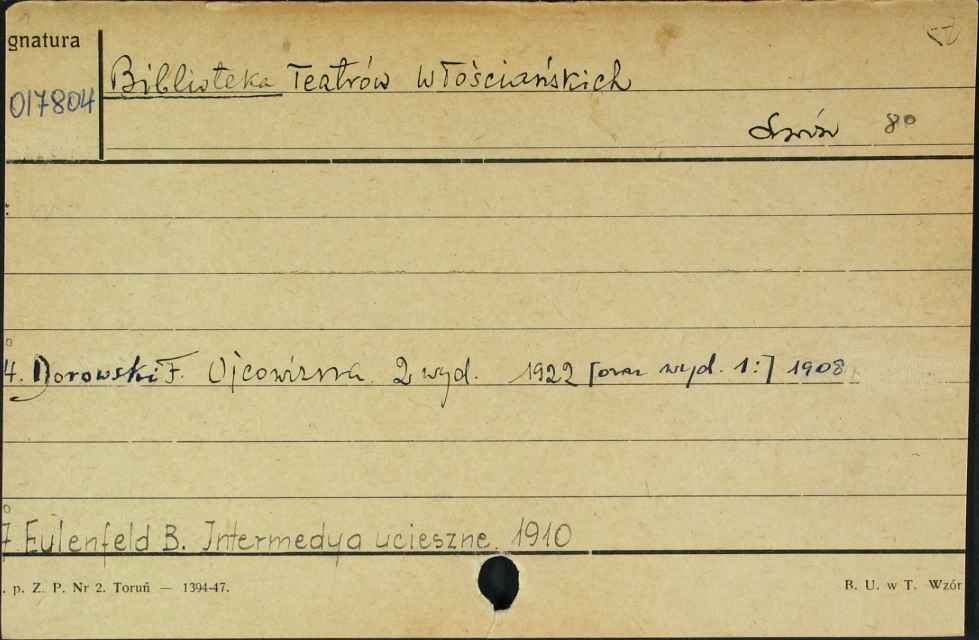 gnatura
Biblioteka Teatrów Włościańskich
017804
Lwów 8°
4. Dorowski F. Ojcowizna. 2 wyd. 1922 [oraz wyd. 1:] 1908
7 Eulenfeld B. Intermedya ucieszne. 1910
. p. Z. P. Nr 2. Toruń — 1394-47.
B. U. w T. Wzór